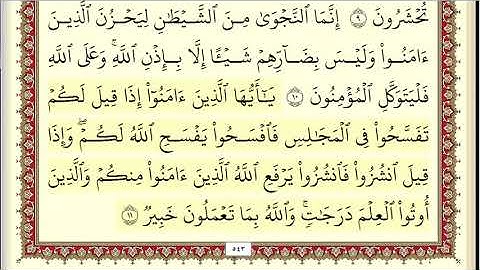 تُحۡشَرُونَ ٩ إِنَّمَا ٱلنَّجۡوَىٰ مِنَ ٱلشَّيۡطَٰنِ لِيَحۡزُنَ ٱلَّذِينَ
ءَامَنُواْ وَلَيۡسَ بِضَآرِّهِمۡ شَيۡـًٔا إِلَّا بِإِذۡنِ ٱللَّهِۚ وَعَلَى ٱللَّهِ
فَلۡيَتَوَكَّلِ ٱلۡمُؤۡمِنُونَ ١٠ يَٰٓأَيُّهَا ٱلَّذِينَ ءَامَنُوٓاْ إِذَا قِيلَ لَكُمۡ
تَفَسَّحُواْ فِي ٱلۡمَجَٰلِسِ فَٱفۡسَحُواْ يَفۡسَحِ ٱللَّهُ لَكُمۡۖ وَإِذَا
قِيلَ ٱنشُزُواْ فَٱنشُزُواْ يَرۡفَعِ ٱللَّهُ ٱلَّذِينَ ءَامَنُواْ مِنكُمۡ وَٱلَّذِينَ
أُوتُواْ ٱلۡعِلۡمَ دَرَجَٰتٖۚ وَٱللَّهُ بِمَا تَعۡمَلُونَ خَبِيرٞ ١١
٥٤٣